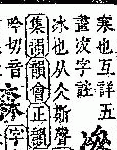 寒也互詳五
畫字註
冰也从仌斯聲
集韻韻會正韻
吟切音
字